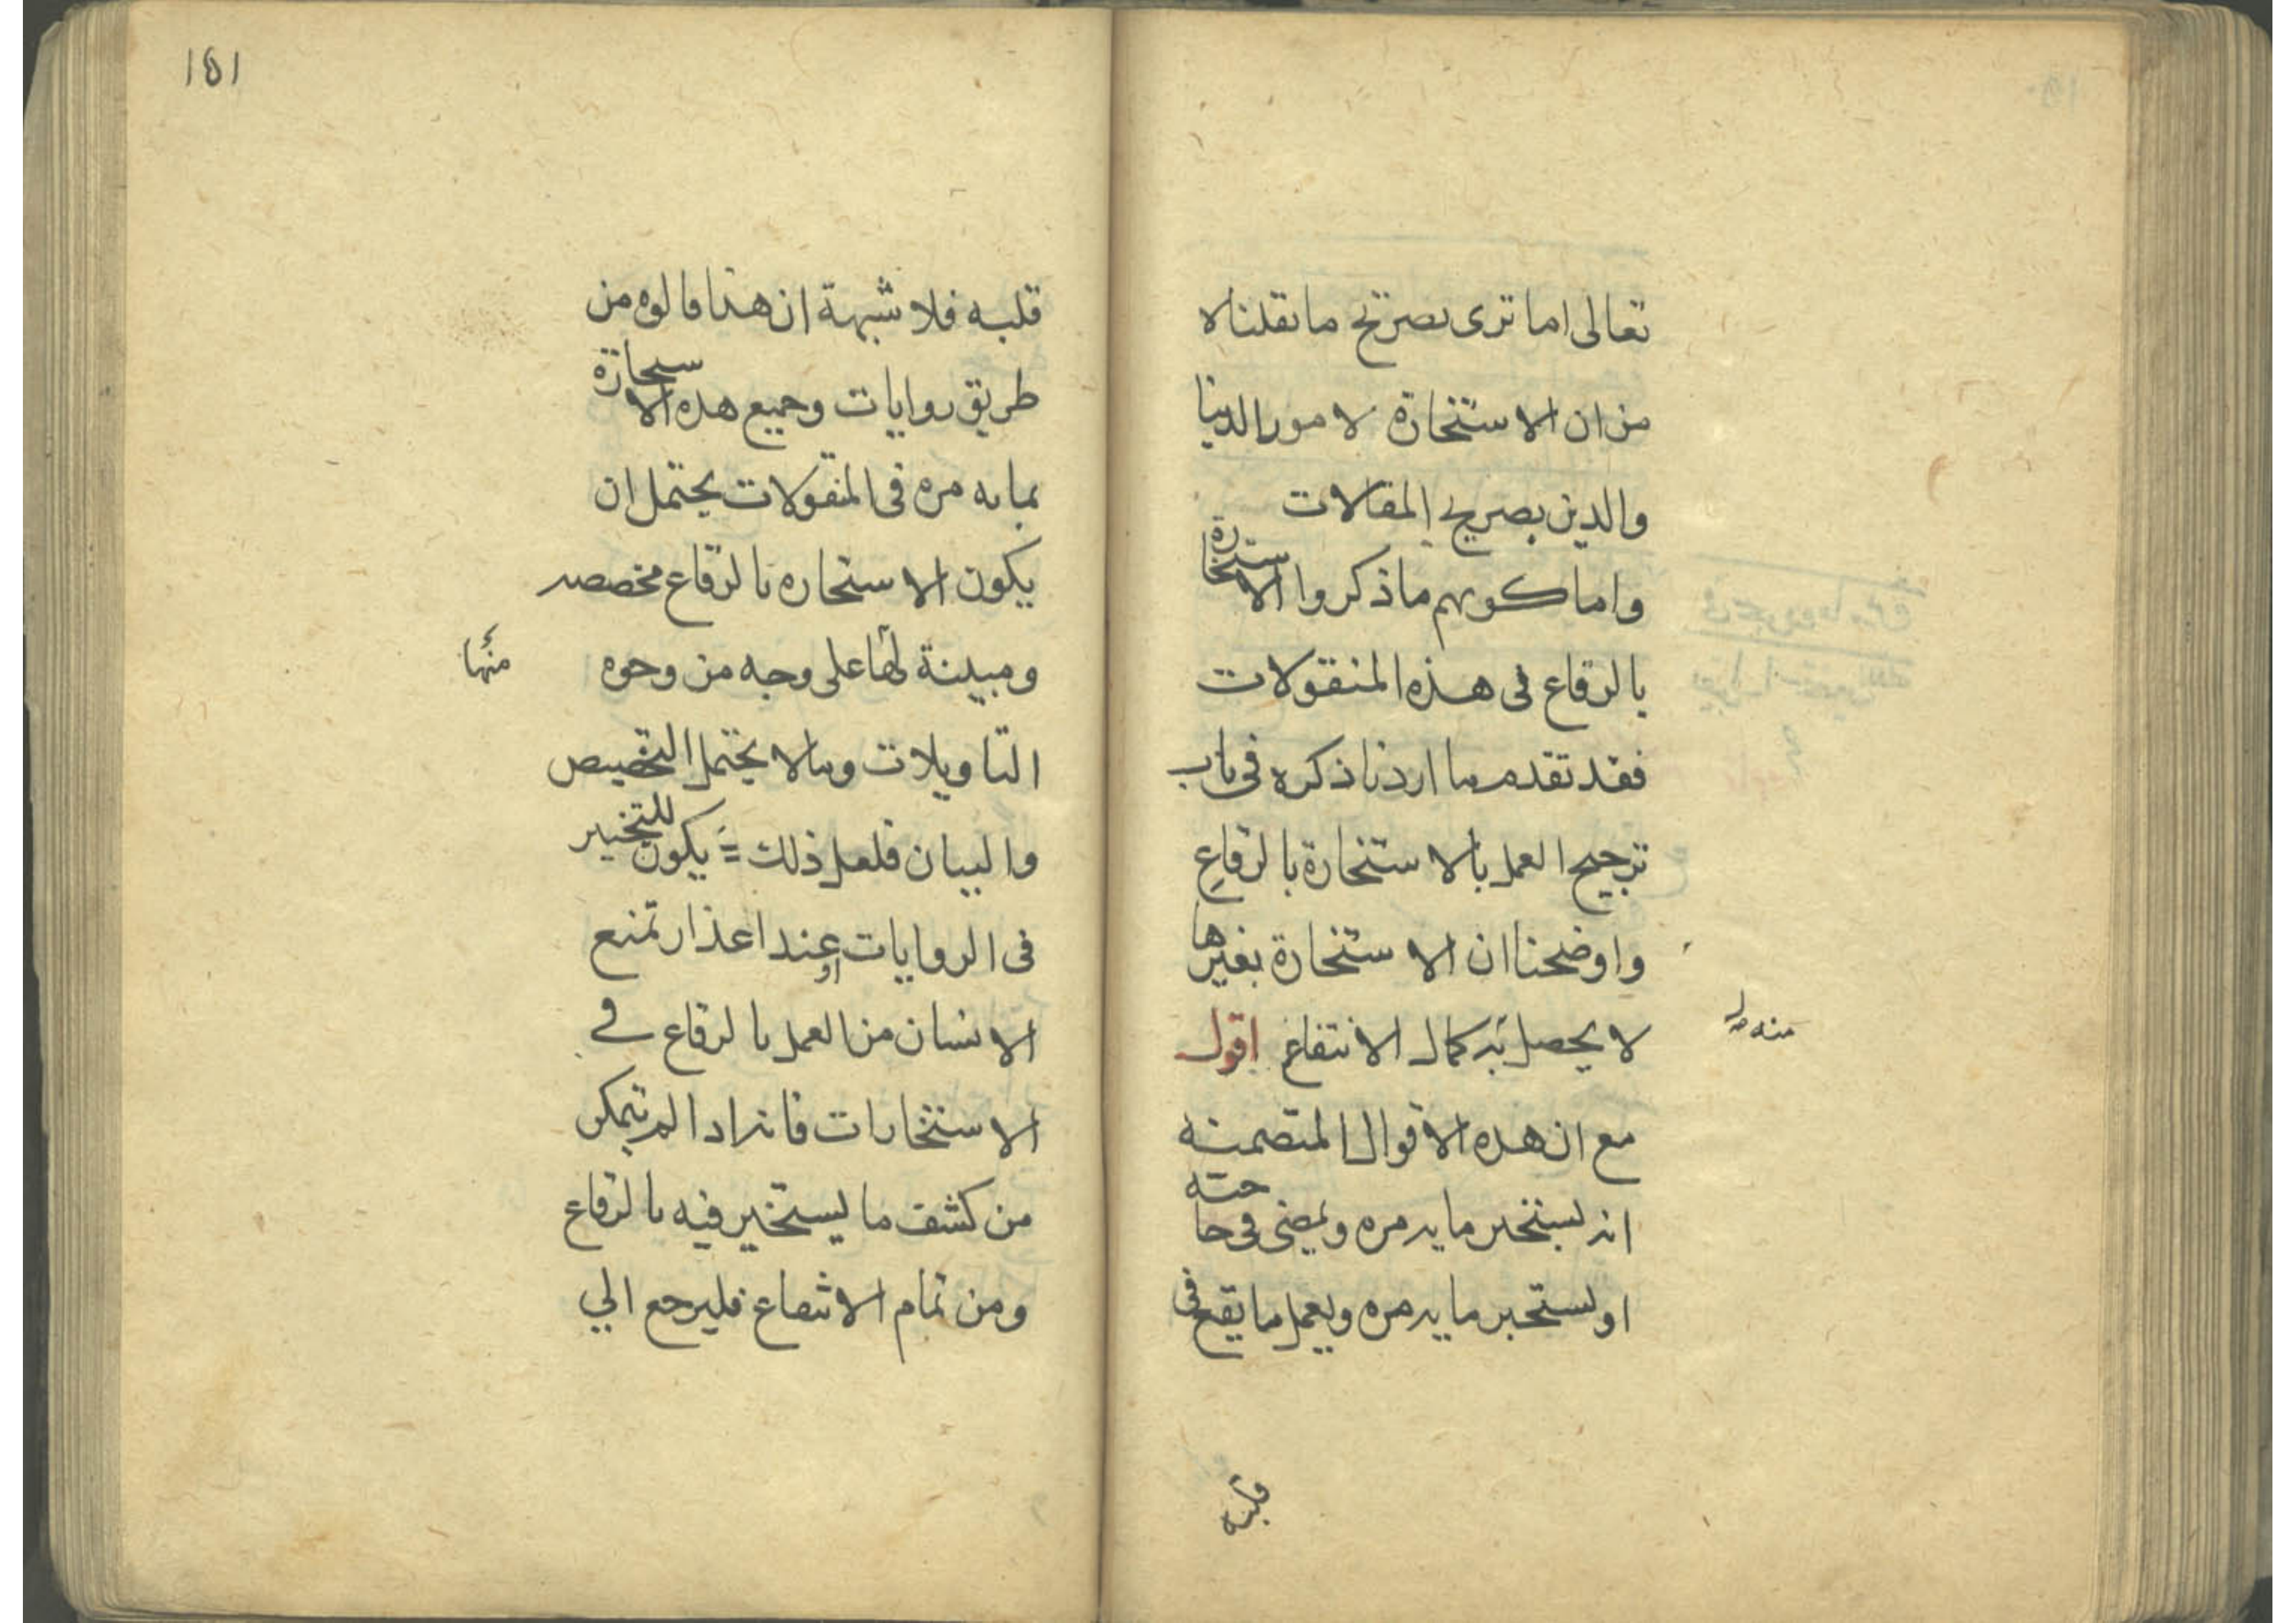 تعالى اما ترى تصريح ما نقلناه
من ان الاستخارة لامور الدنيا
والدين بصريح المقالات
واما كونهم ما ذكروا الاستخارة
بالرقاع فى هذه المنقولات
فقد تقدم ما اردنا ذكره فى باب
ترجيح العمل بالاستخارة بالرقاع
واوضحنا ان الاستخارة بغيرها
لا يحصل به كمال الانتفاع اقول
مع ان هذه الاقوال المتضمنه
انه يستخير ماية مره ويمضى فى حاجته
او يستخير ماية مره ويعمل ما يقع فى
قلبه
151
قلبه فلا شبهة ان هذا قالوه من
طريق روايات وجميع هذه الاستخارة
بمايه مره فى المنقولات يحتمل ان
يكون الاستخاره بالرقاع مخصصه
ومبينة لها على وجه من وجوه
منها
التاويلات وما لا يحتمل التخصيص
والبيان فلعل ذلك يكون للتخيير
فى الروايات او عند اعذار تمنع
الانسان من العمل بالرقاع في
الاستخارات فانه اذا لم يتمكن
من كشف ما يستخير فيه بالرقاع
ومن تمام الانتفاع فليرجع الي